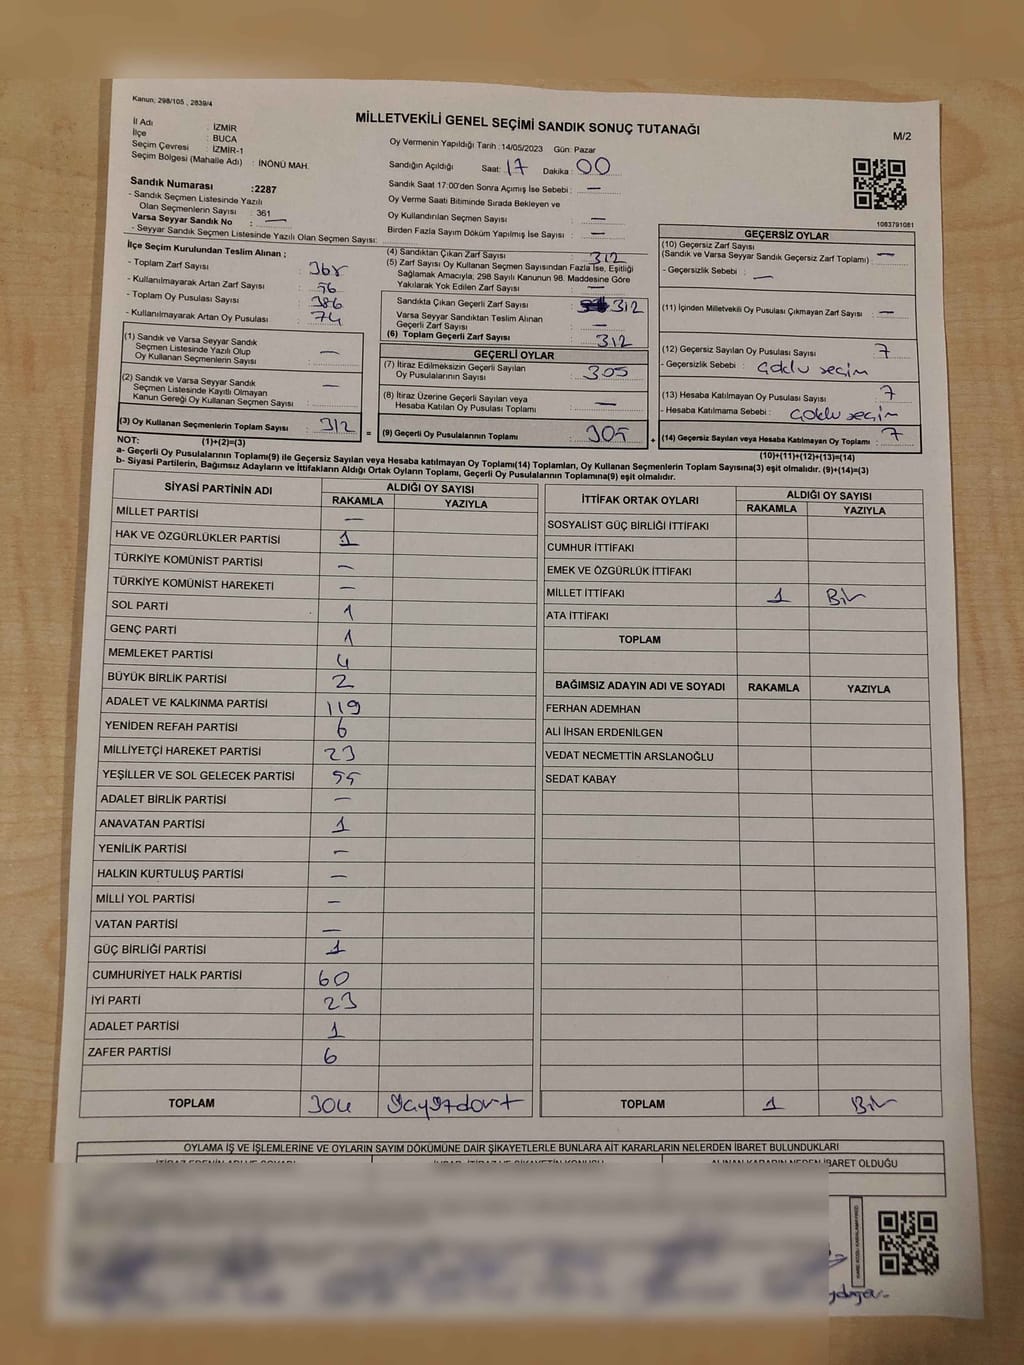 Kanun; 298/105 , 2839/4
MİLLETVEKİLİ GENEL SEÇİMİ SANDIK SONUÇ TUTANAĞI
M/2
İl Adı : İZMİR
İlçe : BUCA
Seçim Çevresi : İZMİR-1
Seçim Bölgesi (Mahalle Adı) : İNÖNÜ MAH.
Oy Vermenin Yapıldığı Tarih : 14/05/2023 Gün: Pazar
Sandığın Açıldığı Saat: 17 Dakika: 00
Sandık Saat 17:00'den Sonra Açımış İse Sebebi : —
Oy Verme Saati Bitiminde Sırada Bekleyen ve
Oy Kullandırılan Seçmen Sayısı : —
Birden Fazla Sayım Döküm Yapılmış İse Sayısı : —
Sandık Numarası :2287
- Sandık Seçmen Listesinde Yazılı
Olan Seçmenlerin Sayısı : 361
Varsa Seyyar Sandık No : —
- Seyyar Sandık Seçmen Listesinde Yazılı Olan Seçmen Sayısı:
1083791081
İlçe Seçim Kurulundan Teslim Alınan ;
- Toplam Zarf Sayısı : 368
- Kullanılmayarak Artan Zarf Sayısı : 56
- Toplam Oy Pusulası Sayısı : 386
- Kullanılmayarak Artan Oy Pusulası : 74
(1) Sandık ve Varsa Seyyar Sandık
Seçmen Listesinde Yazılı Olup
Oy Kullanan Seçmenlerin Sayısı : —
(2) Sandık ve Varsa Seyyar Sandık
Seçmen Listesinde Kayıtlı Olmayan
Kanun Gereği Oy Kullanan Seçmen Sayısı : —
(3) Oy Kullanan Seçmenlerin Toplam Sayısı : 312
(4) Sandıktan Çıkan Zarf Sayısı : 312
(5) Zarf Sayısı Oy Kullanan Seçmen Sayısından Fazla İse, Eşitliği
Sağlamak Amacıyla; 298 Sayılı Kanunun 98. Maddesine Göre
Yakılarak Yok Edilen Zarf Sayısı : —
Sandıkta Çıkan Geçerli Zarf Sayısı : 312
Varsa Seyyar Sandıktan Teslim Alınan
Geçerli Zarf Sayısı : —
(6) Toplam Geçerli Zarf Sayısı : 312
GEÇERLİ OYLAR
(7) İtiraz Edilmeksizin Geçerli Sayılan
Oy Pusulalarının Sayısı : 305
(8) İtiraz Üzerine Geçerli Sayılan veya
Hesaba Katılan Oy Pusulası Toplamı : —
= (9) Geçerli Oy Pusulalarının Toplamı : 305
GEÇERSİZ OYLAR
(10) Geçersiz Zarf Sayısı
(Sandık ve Varsa Seyyar Sandık Geçersiz Zarf Toplamı) : —
- Geçersizlik Sebebi : —
(11) İçinden Milletvekili Oy Pusulası Çıkmayan Zarf Sayısı : —
(12) Geçersiz Sayılan Oy Pusulası Sayısı : 7
- Geçersizlik Sebebi : Çoklu seçim
(13) Hesaba Katılmayan Oy Pusulası Sayısı : 7
- Hesaba Katılmama Sebebi : Çoklu seçim
+ (14) Geçersiz Sayılan veya Hesaba Katılmayan Oy Toplamı : 7
NOT: (1)+(2)=(3)
(10)+(11)+(12)+(13)=(14)
a- Geçerli Oy Pusulalarının Toplamı(9) ile Geçersiz Sayılan veya Hesaba katılmayan Oy Toplamı(14) Toplamları, Oy Kullanan Seçmenlerin Toplam Sayısına(3) eşit olmalıdır. (9)+(14)=(3)
b- Siyasi Partilerin, Bağımsız Adayların ve İttifakların Aldığı Ortak Oyların Toplamı, Geçerli Oy Pusulalarının Toplamına(9) eşit olmalıdır.
SİYASİ PARTİNİN ADI ALDIĞI OY SAYISI
RAKAMLA YAZIYLA
MİLLET PARTİSİ —
HAK VE ÖZGÜRLÜKLER PARTİSİ 1
TÜRKİYE KOMÜNİST PARTİSİ —
TÜRKİYE KOMÜNİST HAREKETİ —
SOL PARTİ 1
GENÇ PARTİ 1
MEMLEKET PARTİSİ 4
BÜYÜK BİRLİK PARTİSİ 2
ADALET VE KALKINMA PARTİSİ 119
YENİDEN REFAH PARTİSİ 6
MİLLİYETÇİ HAREKET PARTİSİ 23
YEŞİLLER VE SOL GELECEK PARTİSİ 55
ADALET BİRLİK PARTİSİ —
ANAVATAN PARTİSİ 1
YENİLİK PARTİSİ —
HALKIN KURTULUŞ PARTİSİ —
MİLLİ YOL PARTİSİ —
VATAN PARTİSİ —
GÜÇ BİRLİĞİ PARTİSİ 1
CUMHURİYET HALK PARTİSİ 60
İYİ PARTİ 23
ADALET PARTİSİ 1
ZAFER PARTİSİ 6
TOPLAM 304
İTTİFAK ORTAK OYLARI ALDIĞI OY SAYISI
RAKAMLA YAZIYLA
SOSYALİST GÜÇ BİRLİĞİ İTTİFAKI
CUMHUR İTTİFAKI
EMEK VE ÖZGÜRLÜK İTTİFAKI
MİLLET İTTİFAKI 1 Bir
ATA İTTİFAKI
TOPLAM
BAĞIMSIZ ADAYIN ADI VE SOYADI RAKAMLA YAZIYLA
FERHAN ADEMHAN
ALİ İHSAN ERDENİLGEN
VEDAT NECMETTİN ARSLANOĞLU
SEDAT KABAY
TOPLAM 1 Bir
OYLAMA İŞ VE İŞLEMLERİNE VE OYLARIN SAYIM DÖKÜMÜNE DAİR ŞİKAYETLERLE BUNLARA AİT KARARLARIN NELERDEN İBARET BULUNDUKLARI
ALINAN KARARIN NEDEN İBARET OLDUĞU